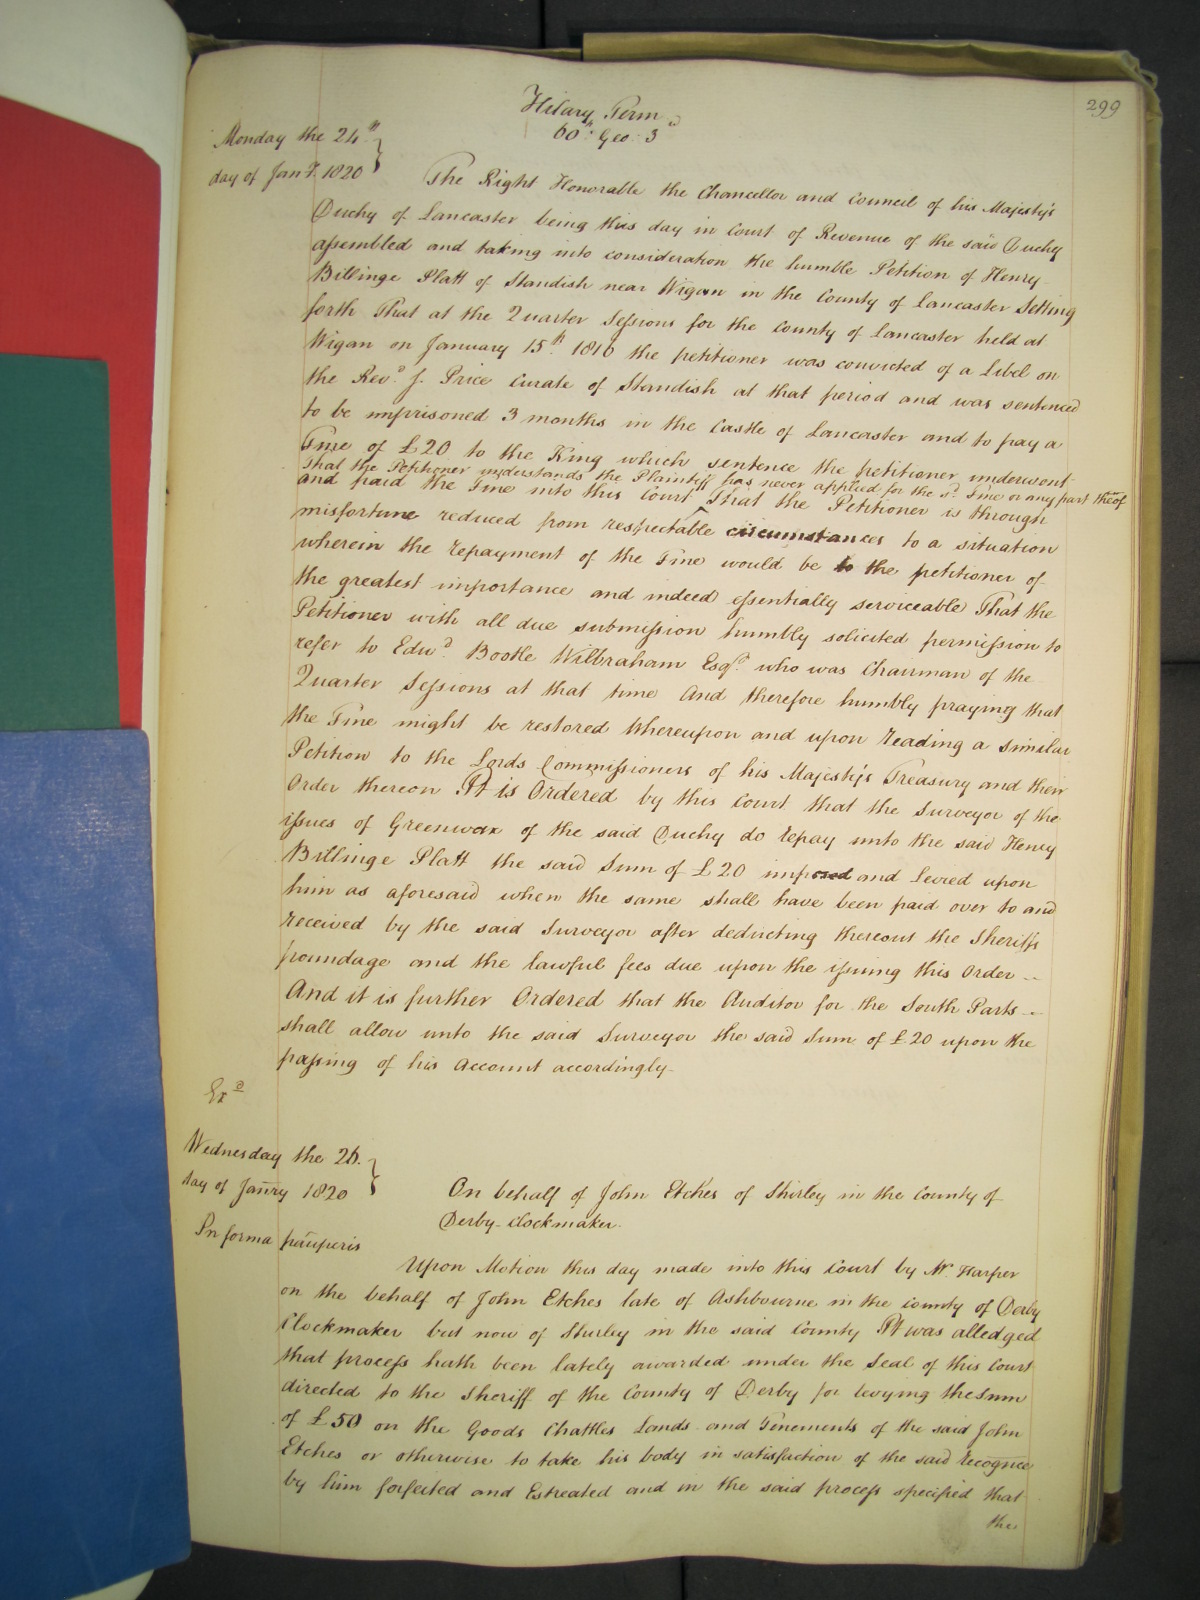 299
Hilary Term
60th Geo: 3d
Monday the 24th
day of Jany. 1820
The Right Honorable the Chancellor and Council of his Majesty's
Duchy of Lancaster being this day in Court of Revenue of the said Duchy
assembled and taking into consideration the humble Petition of Henry
Billinge Platt of Standish near Wigan in the County of Lancaster Setting
forth That at the Quarter Sessions for the County of Lancaster held at
Wigan on January 15th. 1816 the petitioner was convicted of a Libel on
the Revd. J. Price Curate of Standish at that period and was sentenced
to be imprisoned 3 months in the Castle of Lancaster and to pay a
Fine of £20 to the King which sentence the petitioner underwent
That the Petitioner understands the Plaintiff has never applied for the sd. Fine or any part thēof
and paid the Fine into this Court ^ That the Petitioner is through
misfortune reduced from respectable circumstances to a situation
wherein the repayment of the Fine would be to the petitioner of
the greatest importance and indeed essentially serviceable That the
Petitioner with all due submission humbly solicited permission to
refer to Edwd. Bootle Wilbraham Esqr. who was Chairman of the
Quarter Sessions at that time And therefore humbly praying that
the Fine might be restored Whereupon and upon reading a similar
Petition to the Lords Commissioners of his Majesty's Treasury and their
Order thereon It is Ordered by this Court that the Surveyor of the
issues of Greenwax of the said Duchy do repay unto the said Henry
Billinge Platt the said Sum of £20 imposed and levied upon
him as aforesaid when the same shall have been paid over to and
received by the said Surveyor after deducting thereout the Sheriffs
poundage and the lawful fees due upon the issuing this Order --
And it is further Ordered that the Auditor for the South Parts --
shall allow unto the said Surveyor the said Sum of £20 upon the
passing of his Account accordingly
Exd
Wednesday the 26.
day of Janry 1820
On behalf of John Etches of Shirley in the County of
Derby Clockmaker.
In forma paūperis
Upon Motion this day made into this Court by Mr. Harper
on the behalf of John Etches late of Ashbourne in the County of Derby
Clockmaker but now of Shirley in the said County It was alledged
that process hath been lately awarded under the Seal of this Court
directed to the Sheriff of the County of Derby for levying the Sum
of £50 on the Goods Chattles Lands and Tenements of the said John
Etches or otherwise to take his body in satisfaction of the said recognce
by him forfeited and Estreated and in the said process specified that
the